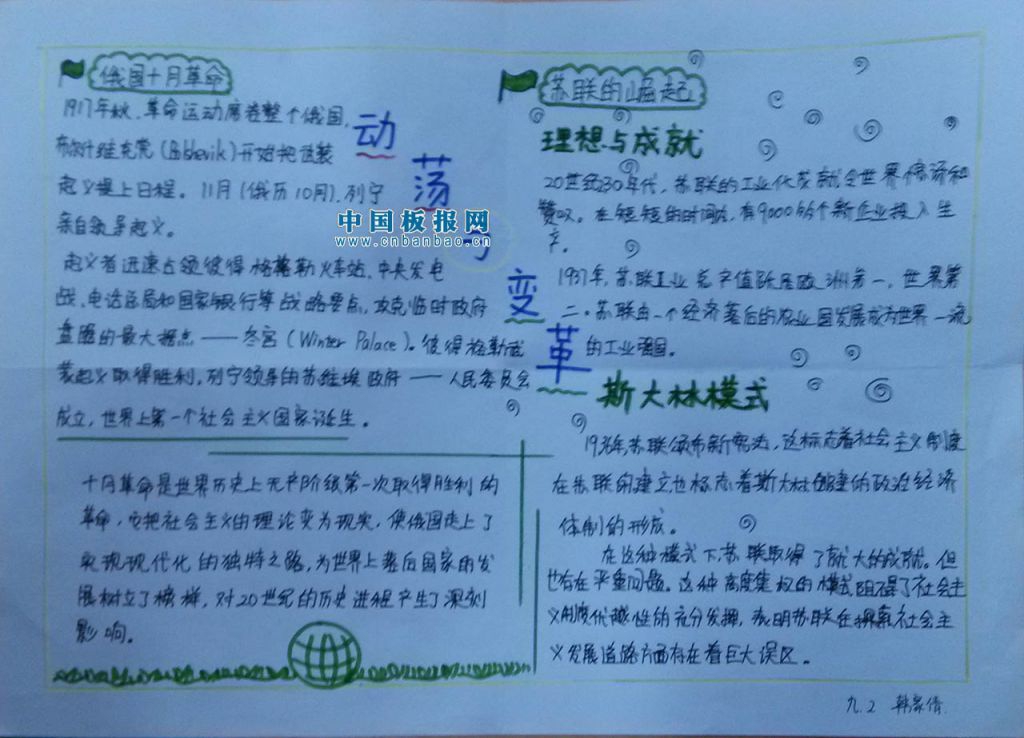 俄国十月革命
1917年秋，革命运动席卷整个俄国，
布尔什维克党（Bolshevik）开始把武装
起义提上日程。11月（俄历10月），列宁
亲自领导起义。
起义者迅速占领彼得格勒火车站、中央发电
战、电话总局和国家银行等战略要点，攻克临时政府
盘踞的最大据点——冬宫（Winter Palace）。彼得格勒武
装起义取得胜利，列宁领导的苏维埃政府——人民委员会
成立，世界上第一个社会主义国家诞生。
十月革命是世界历史上无产阶级第一次取得胜利的
革命，它把社会主义的理论变为现实，使俄国走上了
实现现代化的独特之路，为世界上落后国家的发
展树立了榜样，对20世纪的历史进程产生了深刻
影响。
动
荡
与
变
革
中国板报网
www.cnbanbao.cn
苏联的崛起
理想与成就
20世纪30年代，苏联的工业化成就令世界惊讶和
赞叹。在短短的时间内，有9000个新企业投入生
产。
1937年，苏联工业总产值跃居欧洲第一，世界第
二。苏联由一个经济落后的农业国发展成为世界一流
的工业强国。
斯大林模式
1936年苏联颁布新宪法，这标志着社会主义制度
在苏联的建立也标志着斯大林创建的政治经济
体制的形成。
在这种模式下，苏联取得了巨大的成就。但
也存在严重问题。这种高度集权的模式阻碍了社会主
义制度优越性的充分发挥，表明苏联在探索社会主
义发展道路方面存在着巨大误区。
九.2